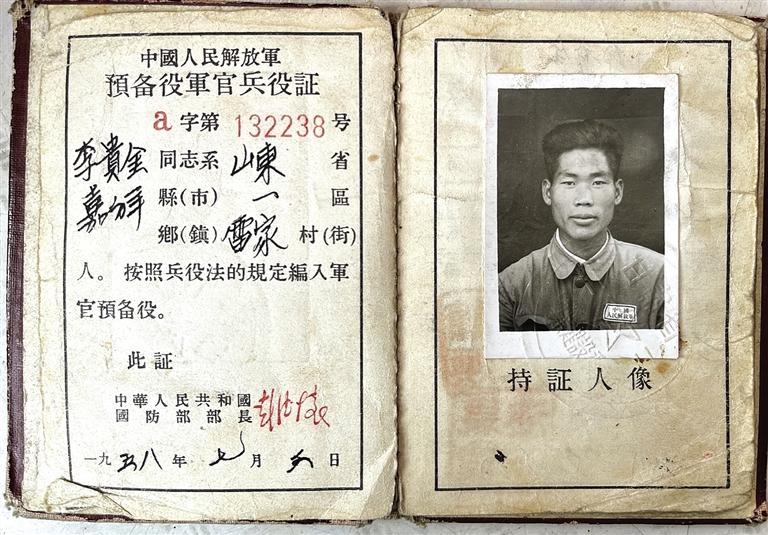 中國人民解放軍
預备役軍官兵役証
a 字第 132238 号
李貴全 同志系 山東 省
嘉祥 縣(市) 一 區
鄉(鎮) 雷家 村(街)
人。按照兵役法的規定編入軍
官預备役。
此証
中華人民共和國
國防部部長 彭德懷
一九五八年七月 日
中國
人民解放軍
持証人像